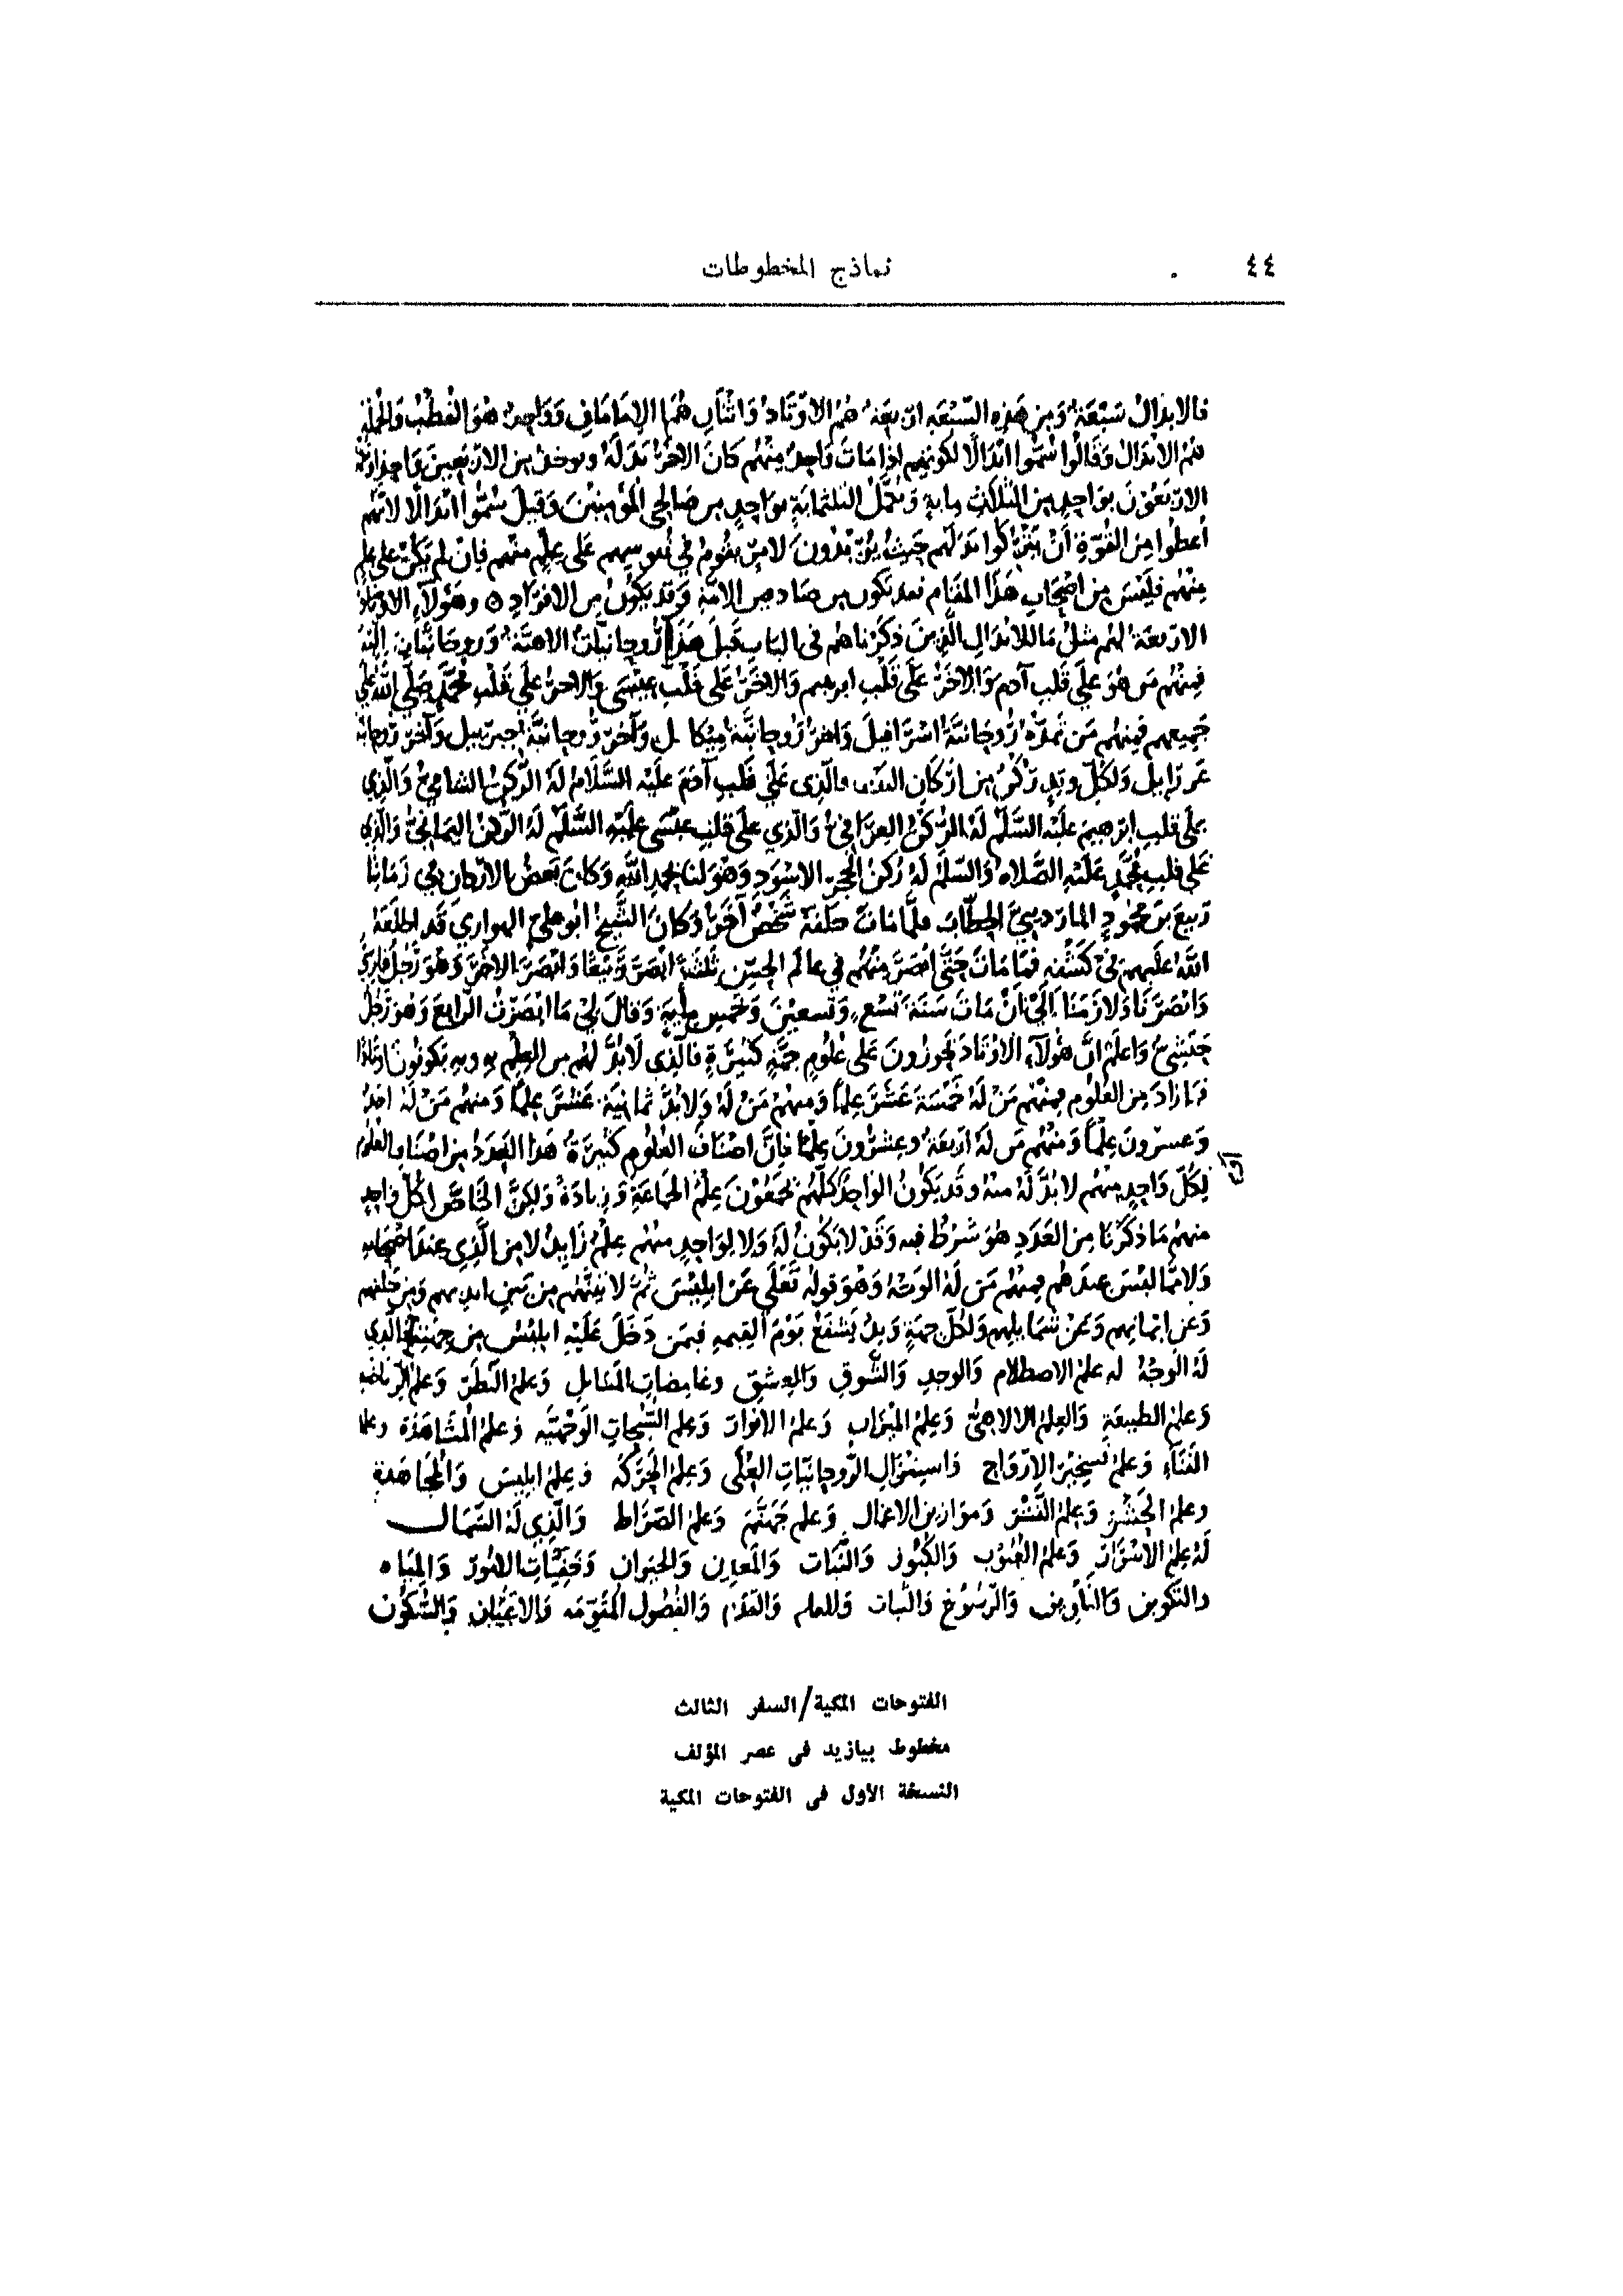 ٤٤ نماذج المخطوطات
فالابدال سَبْعَة وَمِن هَذِهِ السّبْعَه اربعَة هُمُ الاوْتَادُ وَاثْنَانِ هُمَا الإمَامَانِ وَوَاحِدٌ هُوَ القُطْبُ وَالجُملَة
هُمُ الابْدَالُ وَقَالُوا سُمُّوا ابْدَالًا لكونهِم إذا مَاتَ وَاحِدٌ مِنْهُم كَانَ الآخَرُ بَدَلَهُ ويوخذ مِن الارْبَعِينَ وَاحِد
الارْبَعُونَ بوَاحِدٍ مِنَ الثلاث مايةٍ وَتُكَمَّلُ الثلثمايَةِ بوَاحِدٍ من صَالِحِي المُؤمِنِيْنَ وَقِيلَ سُمُّوا ابْدَالًا لأنّهُم
أعطُوا مِنَ القُوّةِ أنْ يَتْرُكُوا بَدَلَهُم حَيثُ يُرِيْدُونَ لامرٍ يقُومُ في نُفوسِهِم عَلى عِلمٍ منهُم فإنْ لم يَكُنْ على عِلمٍ
مِنْهُم فَلَيْسَ مِن اصْحَابِ هَذَا المَقَام فقد يَكُون من صُلَحاء الامّة وَقد يَكُونُ مِن الافرَادِ ٥ وهَؤلآءِ الاوْتَادُ
الارْبَعَة لهُم مثلُ مَا للابْدَالِ الَّذِينَ ذكَرْنَاهُم فى البَاب قَبلَ هَذَا رُوحَانيّةٌ الاهيّة وَرُوحَانيّة إليّة
فمِنْهُم مَن هُوَ عَلَى قَلب آدم وَالآخَرُ عَلى قَلْبِ ابرهيم وَالآخَرُ عَلى قَلْبِ عِيْسَى وَالآخرُ عَلى قَلْبِ مُحَمَّدٍ صَلّى اللهُ عَلَى
جَميعِهم فمِنْهُم مَن تمدّهُ رُوحَانيّةُ اسْرَافيلَ وَآخَرُ رُوحَانيّةُ مِيْكَائيل وَآخَرُ رُوحانيّةُ جبرئيل وَآخَر رُوحانيّة
عَزرَايل وَلكُلّ وتِدٍ رُكْنٌ مِن ارْكَانِ البَيْت فالّذِى عَلى قَلبِ آدَمَ عَلَيْه السَّلَامُ لَهُ الرُّكنُ الشَاميُّ وَالَّذِي
عَلى قلبِ ابْرَهِيمَ عَلَيْه السَّلَمُ لَهُ الرُّكنُ العِرَاقيُّ وَالّذِي عَلى قلبِ عيْسَى عَلَيْه السَّلَمُ لَهُ الرُّكنُ اليَمَانِيُّ وَالّذِي
عَلى قلبِ مُحَمَّدٍ عَلَيْهِ الصَّلاهُ وَالسّلَمُ لَهُ رُكنُ الحَجَرِ الاسْوَدِ وَهُوَ لنا بحمدِ اللهِ وَكَانَ بَعضُ الارْكانِ فِي زَمَانِنَا
رَبيعَ بنَ مَحمُودٍ المَاردينِيَّ الحطّابَ فلَمَّا مَاتَ خلَفَهُ شَخْصٌ آخَرُ وَكانَ الشَّيخُ ابُو عليٍّ الهواريّ قَد اطلَعَهُ
اللهُ عَلَيهِم فى كَشْفِهِ فمَا مَاتَ حَتَّى أبْصَرَ مِنْهُم في عَالمِ الحسِّ ثلثَةً أبْصَرَ رَبيْعًا وَابْصَرَ الآخَرَ وَهُوَ رَجُلٌ فارِسِيّ
وَابْصَرَنَا وَلازَمَنَا إلَى أنْ مَاتَ سَنَةَ تسْعٍ وَتسعينَ وَخمسِ مِايَةٍ وَقَالَ لِي مَا ابْصَرْتُ الرّابِعَ وَهُوَ رَجُلٌ
حَبَشِيٌّ وَاعلَمْ انَّ هَؤلآءِ الاوْتَادَ يَحوُونَ عَلى عُلُومٍ جمّةٍ كَثِيرَةٍ فالّذِى لا بُدَّ لهُم من العِلمِ بهِ وبهِ يَكُونُونَ اوْتَادًا
فمَا زادَ مِن العُلُوم فمِنْهُم مَنْ لَهُ خَمْسَة عَشَرَ عِلمًا وَمِنهُمْ مَنْ لَهُ وَلابُدّ ثمَانِيَة عَشَرَ عِلمًا وَمنهُم مَنْ لَهُ احَدٌ
وَعِشرُونَ عِلْمًا وَمِنْهُم مَن لَهُ ارْبَعَةٌ وعِشرُونَ عِلْمًا فإنَّ اصْنَافَ العُلُوم كَثِيرَةٌ هَذا العَدَدُ مِن اصْنَافِ العُلُوم
لِكُلّ وَاحِدٍ مِنْهُم لا بُدَّ لَهُ منهُ وقد يَكُونُ الوَاحِدُ كُلّهُم يَجْمَعُونَ عِلْمَ الجَماعَةِ وَزيادَةً وَلَكِنَّ الخَاصَّ لِكُلّ وَاحِدٍ
مِنهُم مَا ذكَرْنَا مِن العَدَدِ هُوَ شَرْطٌ فيه وَقَدْ لا يَكُونُ لَهُ وَلا لِوَاحِدٍ منهُم عِلْمٌ زَايدٌ لا مِن الَّذِي عِندَ اصْحَابهِ
وَلا ممّا لَيْسَ عِندَهُم فمِنْهُم مَن لَهُ الوَجْهُ وَهُوَ قولهُ تَعَلَى عَنْ ابلِيْسَ ثُمَّ لآتِيَنَّهُم مِن بَيْنِ ايديهِم وَمِن خَلفِهِم
وَعَن ايْمَانِهِم وَعَنْ شَمَايلِهِم وَلكُلّ جِهَةٍ وَتِدٌ يَشْفَعُ يَوْمَ القِيمهِ فيمَن دَخَلَ عَلَيْهِ ابلِيْس مِن جِهَتِهِ فالّذِي
لَهُ الوَجْهُ له علمُ الاصطلام وَالوجدِ وَالشَّوقِ وَالعِشقِ وغامِضَاتِ المَسَايلِ وَعلمُ النّظَرِ وَعلمُ الرّيَاضَهِ
وَعلمُ الطبيعَةِ وَالعِلمُ الالاهىُّ وَعِلمُ المِيْزانِ وَعلمُ الانْوارِ وَعِلم السُّبُحاتِ الوَجْهيّه وَعلمُ المُشَاهَدَة وعلمُ
الفَنَاءِ وَعلمُ تسخِيْرِ الارْوَاحِ وَاسينْزالِ الرّوحانيّاتِ العُلَى وَعِلمُ الحَرَكةِ وَعِلمُ ابليسَ وَالمُجَاهَدةِ
وعلمُ الحَشْرِ وَعِلمُ النَّشْرِ وَموَازينِ الاعمَالِ وَعلم جَهَنّمَ وَعلمُ الصّرَاطِ وَالّذِي لَهُ الشّمَالُ
لَهُ عِلمُ الاسْرَارِ وَعلمُ الغُيُوبِ وَالكُنُوزِ وَالنّبَاتِ وَالمَعدِنِ وَالحَيوَانِ وَخَفِيّاتِ الامُورِ وَالمِيَاه
والتّكوِينِ وَالتّلْوِينِ وَالرّسُوْخِ وَالثّبَاتِ وَالمقام وَالقَدَمِ وَالفُصُولِ المُقَوّمَه وَالاعْيَانِ وَالسُّكُونِ
الفتوحات المكية/السفر الثالث
مخطوط بيازيد فى عصر المؤلف
النسخة الأول فى الفتوحات المكية